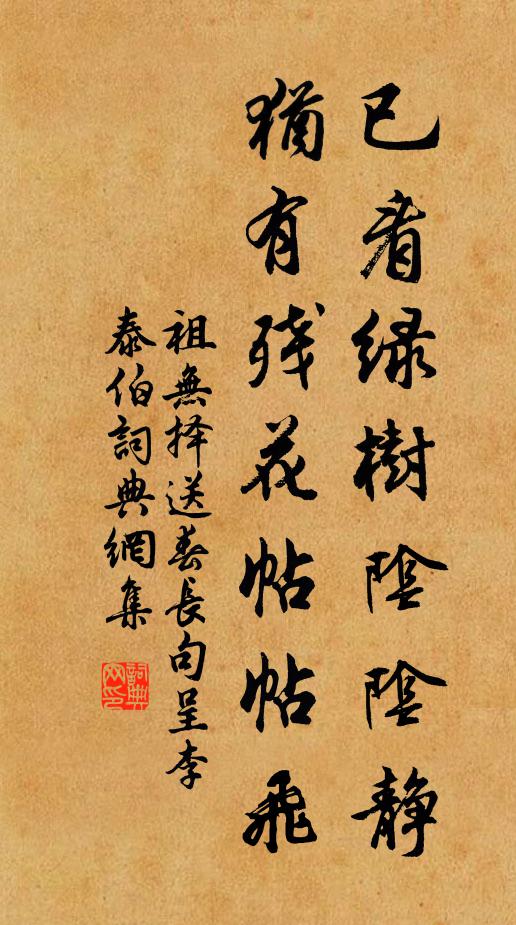 已看綠樹陰陰靜
猶有残花帖帖飛
祖無择送春長句呈李
泰伯詞典網集
詞典网印